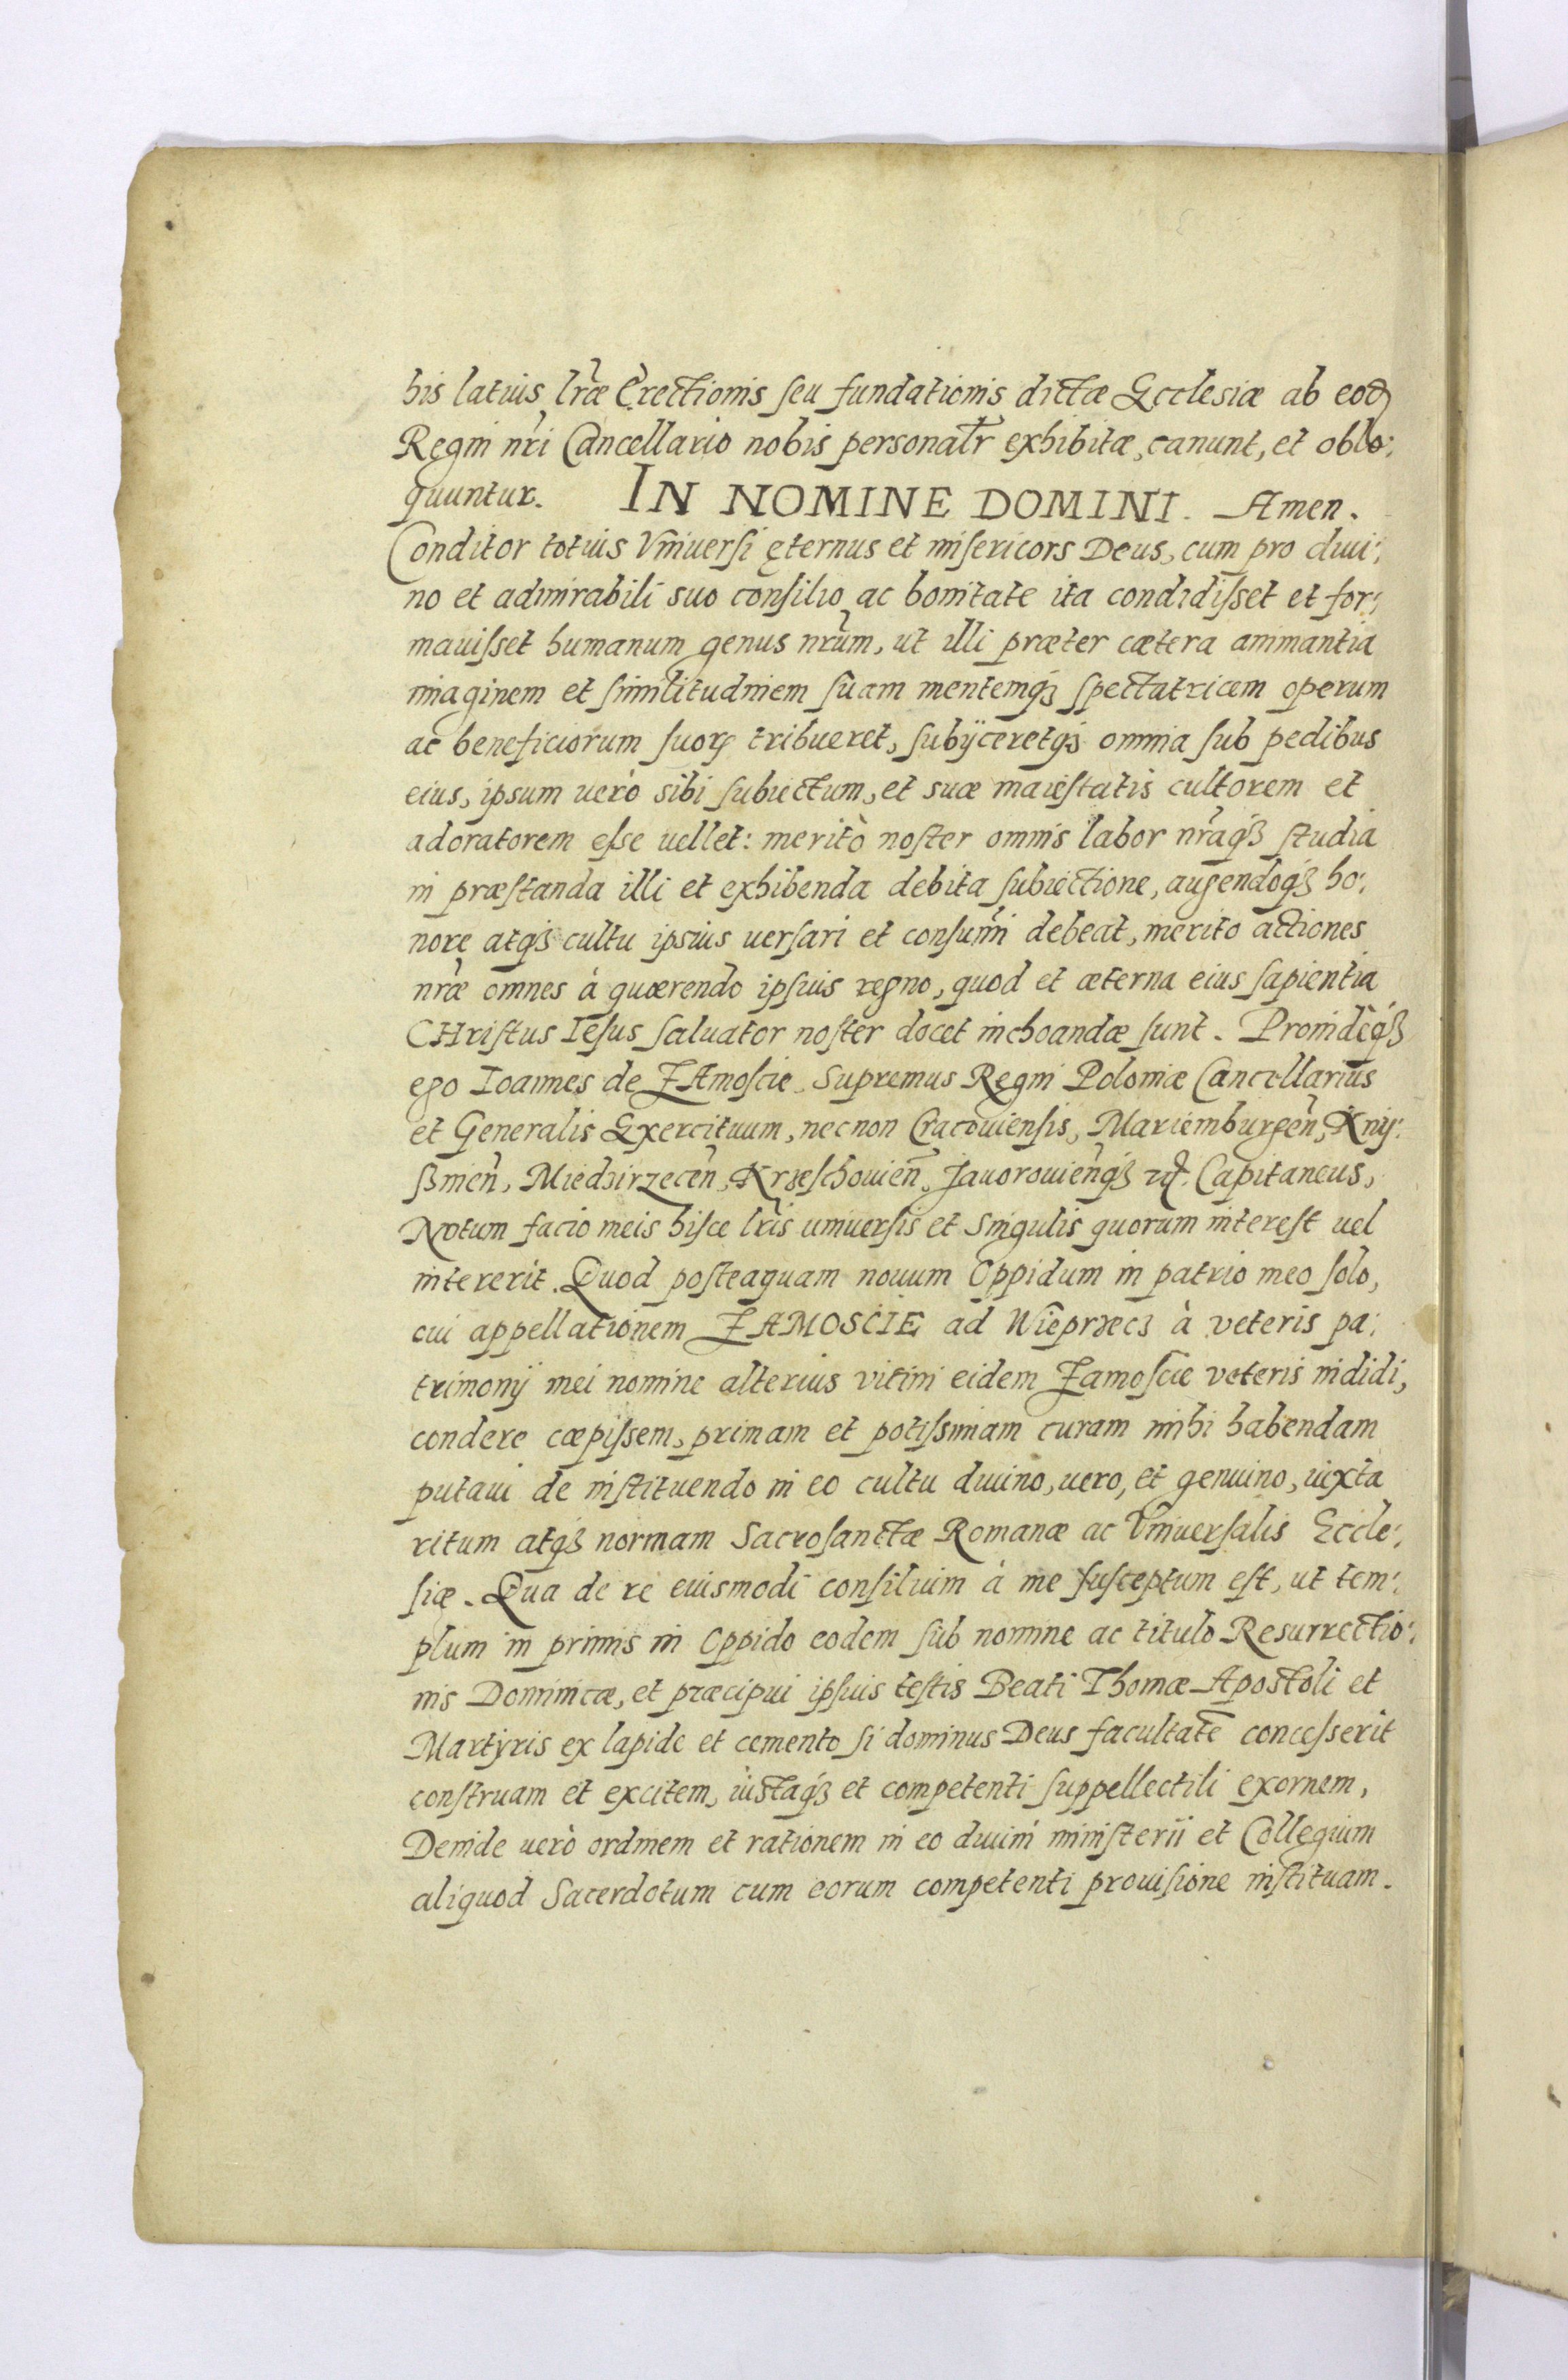 his latius lr̃æ Erectionis ſeu fundationis dictæ Ecclesiæ ab eod̃
Regni nr̃i Cancellario nobis personalr̃ exhibitæ, canunt, et oblo:
quuntur. IN NOMINE DOMINI. Amen.
Conditor totius Vniuerſi ęternus et miſericors Deus, cum pro diui:
no et admirabili suo conſilio ac bonitate ita condidiſset et for:
mauiſset humanum genus nr̃um, ut illi præter cætera animantia
imaginem et ſimilitudinem ſuam mentemqꝫ ſpectatricem operum
ac beneficiorum ſuoꝝ tribueret, ſubijceretqꝫ omnia ſub pedibus
eius, ipsum uerò sibi ſubiectum, et suæ maieſtatis cultorem et
adoratorem eſse uellet: meritò noſter omnis labor nr̃aqꝫ ſtudia
in præſtanda illi et exhibenda debita ſubiectione, augendoqꝫ ho:
nore atqꝫ cultu ipsius uersari et conſumi debeat, merito actiones
nr̃æ omnes à quærendo ipſius regno, quod et æterna eius ſapientia
CHriſtus Ieſus ſaluator noſter docet inchoandæ ſunt. Proindeqꝫ
ego Ioannes de ZAmoſcie Supremus Regni Poloniæ Cancellarius
et Generalis Exercituum, necnon Cracouiensis, Mariemburgen̄, Knij:
ſsinen̄, Miedzirzecen̄, Krzeſchouien̄, Jauorouien̄qꝫ ꝛc̃. Capitaneus,
Notum facio meis hiſce lr̃is uniuerſis et singulis quorum intereſt uel
intererit. Quod poſteaquam nouum Oppidum in patrio meo ſolo,
cui appellationem ZAMOSCIE ad Wieprzecz à veteris pa:
trimonij mei nomine alterius vitini eidem Zamoſcie veteris indidi,
condere cæpiſsem, primam et potiſsimam curam mihi habendam
putaui de inſtituendo in eo cultu diuino, uero, et genuino, iuxta
ritum atqꝫ normam Sacroſanctæ Romanæ ac Vniuerſalis Eccle:
ſiæ. Qua de re eiusmodi consilium à me ſuſceptum eſt, ut tem:
plum in primis in Oppido eodem ſub nomine ac titulo Resurrectio:
nis Dominicæ, et præcipui ipſius teſtis Beati Thomæ Apoſtoli et
Martyris ex lapide et cemento ſi dominus Deus facultatē conceſserit
conſtruam et excitem, iuſtaqꝫ et competenti ſuppellectili exornem,
Deinde uerò ordinem et rationem in eo diuini miniſterii et Collegium
aliquod Sacerdotum cum eorum competenti prouiſione inſtituam.